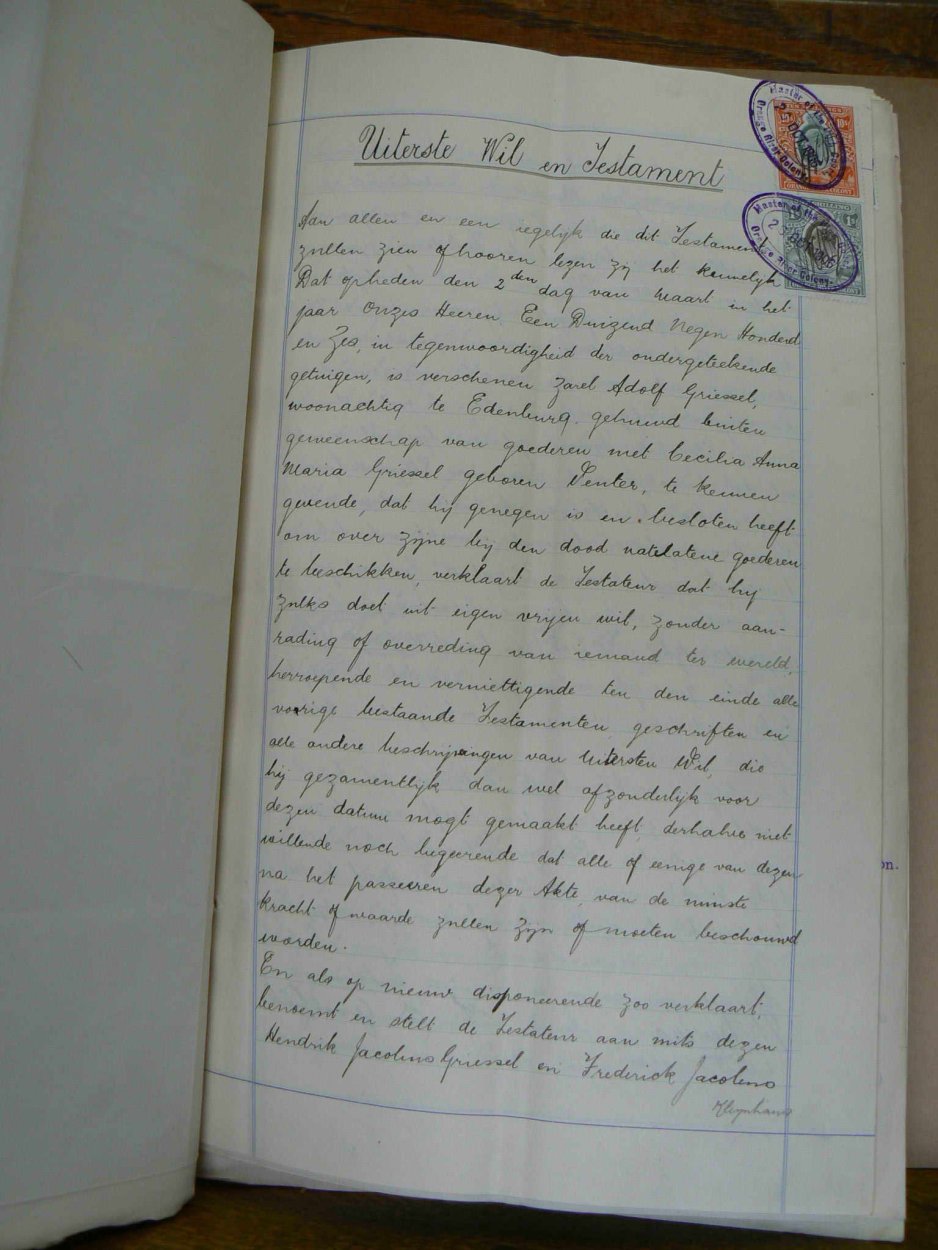 Uiterste Wil en Testament
Aan allen en een iegelyk die dit Testament
zullen zien of hooren lezen zij het kennelyk
Dat opheden den 2den dag van Maart in het
jaar Onzes Heeren Een Duizend Negen Honderd
en Zes, in tegenwoordigheid der ondergeteekende
getuigen, is verschenen Zarel Adolf Griessel,
woonachtig te Edenburg gehuwd buiten
gemeenschap van goederen met Cecilia Anna
Maria Griessel geboren Venter, te kennen
gevende, dat hij genegen is en besloten heeft
om over zijne bij den dood natelatene goederen
te beschikken, verklaart de Testateur dat hij
zulks doet uit eigen vrijen wil, zonder aan-
rading of overreding van iemand ter wereld,
herroepende en verniettigende ten den einde alle
vorige bestaande Testamenten, geschriften en
alle andere beschrijvingen van Uitersten Wil, die
hij gezamentlyk dan wel afzonderlyk voor
dezen datum mogt gemaakt heeft, derhalve niet
willende noch begeerende dat alle of eenige van dezen
na het passeeren dezer Akte, van de minste
kracht of waarde zullen zijn of moeten beschouwd
worden.
En als op nieuw disponeerende zoo verklaart,
benoemt en stelt de Testateur aan mits dezen
Hendrik Jacobus Griessel en Frederick Jacobus
Kleynhans
Master of the
Orange River Colony
2 OCT 1906
10s/
ORANGE RIVER COLONY
Master of the
Orange River Colony
2 OCT 1906
on.